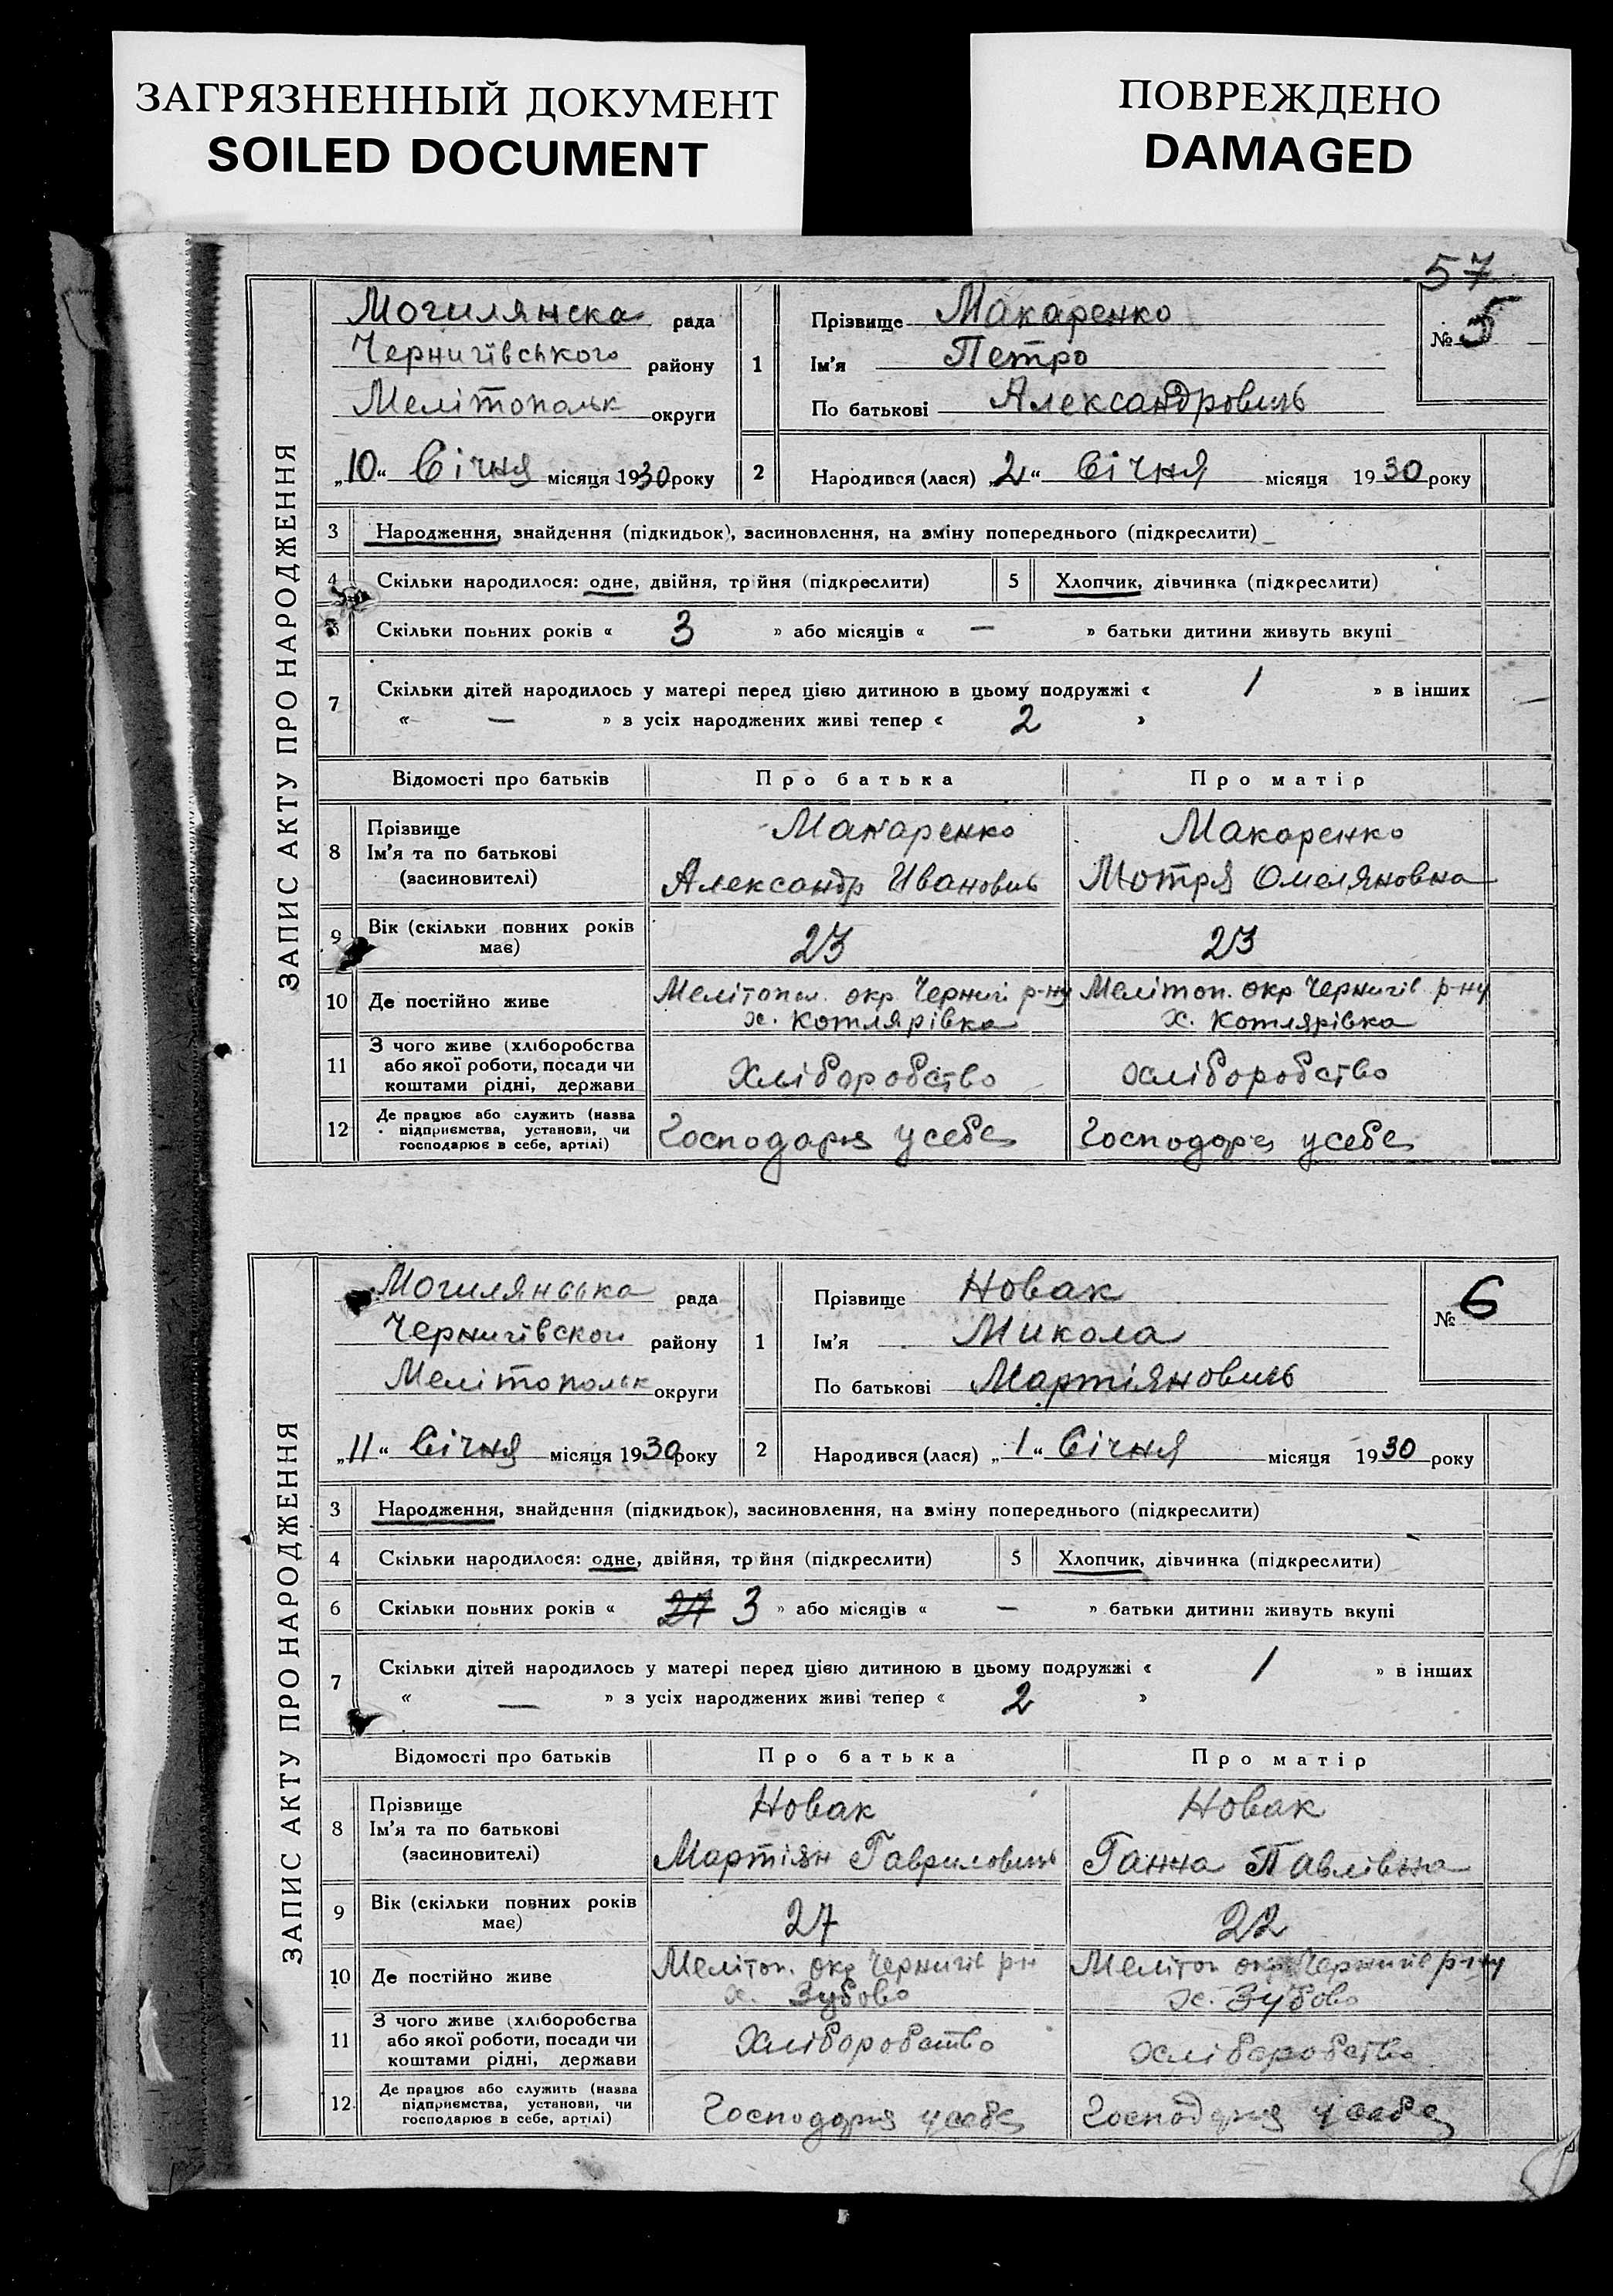 ЗАГРЯЗНЕННЫЙ ДОКУМЕНТ
SOILED DOCUMENT
ПОВРЕЖДЕНО
DAMAGED
57
ЗАПИС АКТУ ПРО НАРОДЖЕННЯ
Могилянска рада
Чернигівського району
Мелітопольк округи
„10“ Січня місяця 1930 року
1 Прізвище Макаренко
Ім'я Петро
По батькові Александрович
№ 5
2 Народився (лася) „2“ Січня місяця 1930 року
3 Народження, знайдення (підкидьок), засиновлення, на зміну попереднього (підкреслити)
4 Скільки народилося: одне, двійня, трійня (підкреслити) 5 Хлопчик, дівчинка (підкреслити)
6 Скільки повних років « 3 » або місяців « — » батьки дитини живуть вкупі
7 Скільки дітей народилось у матері перед цією дитиною в цьому подружжі « 1 » в інших
« — » з усіх народжених живі тепер « 2 »
Відомості про батьків Про батька Про матір
8 Прізвище Макаренко Макаренко
Ім'я та по батькові Александр Иванович Мотря Омеляновна
(засиновителі)
9 Вік (скільки повних років має) 23 23
10 Де постійно живе Мелітопол. окр. Черниги р-ну Мелітоп. окр Чернигів р-ну
х. Котлярівка х. Котлярівка
11 З чого живе (хліборобства
або якої роботи, посади чи Хліборобство хліборобство
коштами рідні, держави
12 Де працює або служить (назва
підприємства, установи, чи Господаря усебе Господаря усебе
господарює в себе, артілі)
ЗАПИС АКТУ ПРО НАРОДЖЕННЯ
Могилянська рада
Чернигівской району
Мелітопольк округи
„11“ Січня місяця 1930 року
1 Прізвище Новак
Ім'я Микола
По батькові Мартіянович
№ 6
2 Народився (лася) „1“ Січня місяця 1930 року
3 Народження, знайдення (підкидьок), засиновлення, на зміну попереднього (підкреслити)
4 Скільки народилося: одне, двійня, трійня (підкреслити) 5 Хлопчик, дівчинка (підкреслити)
6 Скільки повних років « 27 3 » або місяців « — » батьки дитини живуть вкупі
7 Скільки дітей народилось у матері перед цією дитиною в цьому подружжі « 1 » в інших
« — » з усіх народжених живі тепер « 2 »
Відомості про батьків Про батька Про матір
8 Прізвище Новак Новак
Ім'я та по батькові Мартіян Гаврилович Ганна Павлівна
(засиновителі)
9 Вік (скільки повних років має) 27 22
10 Де постійно живе Мелітоп. окр Чернигів рн Мелітоп окр Чернигів р-ну
х. Зубово х. Зубово
11 З чого живе (хліборобства
або якої роботи, посади чи Хліборобство хліборобство
коштами рідні, держави
12 Де працює або служить (назва
підприємства, установи, чи Господаря усебе Господаря усебе
господарює в себе, артілі)